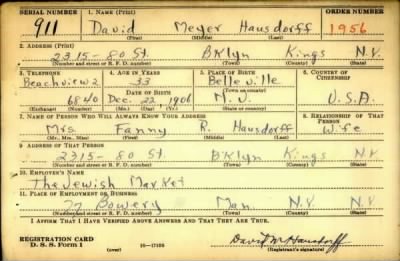 SERIAL NUMBER 1. NAME (Print) ORDER NUMBER
911 David Meyer Hausdorff 1956
(First) (Middle) (Last)
2. ADDRESS (Print)
2315-80 St. BKlyn Kings N.Y.
(Number and street or R. F. D. number) (Town) (County) (State)
3. TELEPHONE 4. AGE IN YEARS 5. PLACE OF BIRTH 6. COUNTRY OF CITIZENSHIP
Beachview 2 33 Belleville
DATE OF BIRTH (Town or county)
6840 Dec. 22, 1906 N.J. U.S.A.
(Exchange) (Number) (Mo.) (Day) (Yr.) (State or country)
7. NAME OF PERSON WHO WILL ALWAYS KNOW YOUR ADDRESS 8. RELATIONSHIP OF THAT PERSON
Mrs. Fanny R. Hausdorff Wife
(Mr., Mrs., Miss) (First) (Middle) (Last)
9. ADDRESS OF THAT PERSON
2315-80 St. BKlyn Kings N.Y.
(Number and street or R. F. D. number) (Town) (County) (State)
10. EMPLOYER'S NAME
The Jewish Market
11. PLACE OF EMPLOYMENT OR BUSINESS
77 Bowery Man. N.Y. N.Y.
(Number and street or R. F. D. number) (Town) (County) (State)
I AFFIRM THAT I HAVE VERIFIED ABOVE ANSWERS AND THAT THEY ARE TRUE.
REGISTRATION CARD
D. S. S. Form 1 (over) 16-17105 David M Hausdorff
(Registrant's signature)